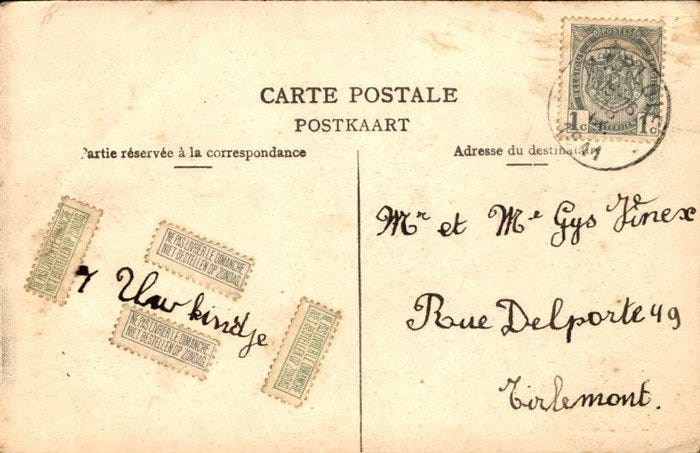 CARTE POSTALE
POSTKAART
Partie réservée à la correspondance
Adresse du destinataire
POSTES
1c 1c
11
NE PAS LIVRER LE DIMANCHE
NIET BESTELLEN OP ZONDAG
NE PAS LIVRER LE DIMANCHE
NIET BESTELLEN OP ZONDAG
Uw kindje
NE PAS LIVRER LE DIMANCHE
NIET BESTELLEN OP ZONDAG
NE PAS LIVRER LE DIMANCHE
NIET BESTELLEN OP ZONDAG
Mr et Me Gys
Rue Delporte 49
Tirlemont.